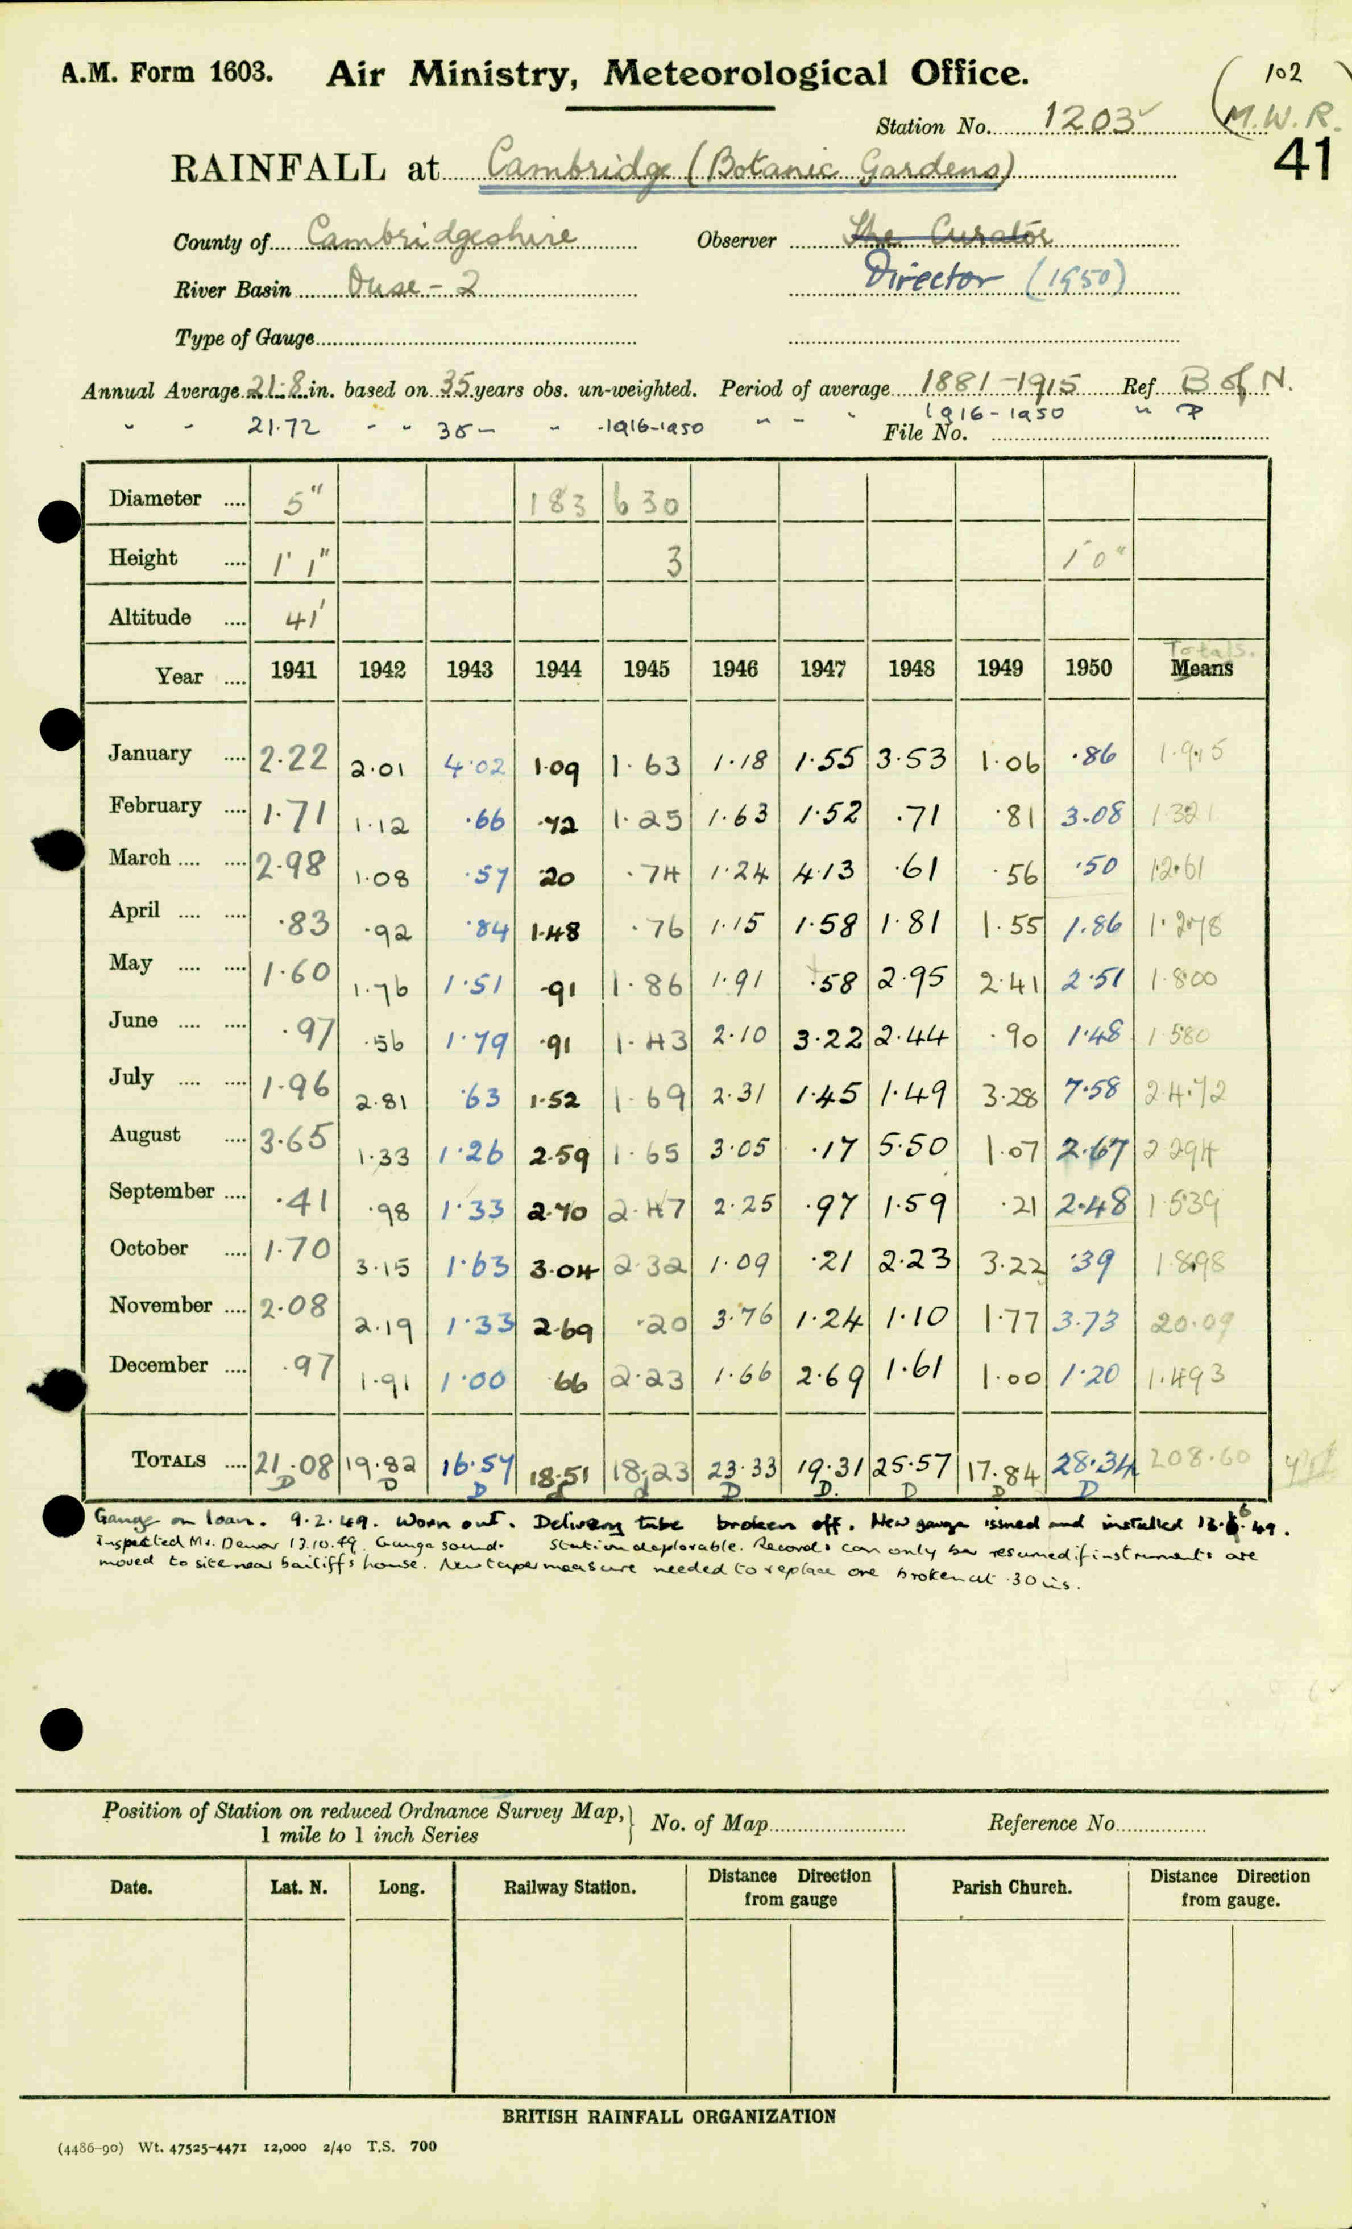 A.M. Form 1603. Air Ministry, Meteorological Office. (102
Station No. 1203 M.W.R.
41
RAINFALL at Cambridge (Botanic Gardens)
County of Cambridgeshire Observer The Curator
River Basin Ouse - 2 Director (1950)
Type of Gauge
Annual Average 21.8 in. based on 35 years obs. un-weighted. Period of average 1881-1915 Ref B of N.
" " 21.72 " " 35 - " 1916-1950 " " " 1916-1950 "
File No.
Diameter .... 5" 183 630
Height .... 1' 1" 3 1' 0"
Altitude .... 41'
Totals.
Year .... 1941 1942 1943 1944 1945 1946 1947 1948 1949 1950 Means
January .... 2.22 2.01 4.02 1.09 1.63 1.18 1.55 3.53 1.06 .86 1.915
February .... 1.71 1.12 .66 .72 1.25 1.63 1.52 .71 .81 3.08 1.321
March .... .... 2.98 1.08 .57 .20 .74 1.24 4.13 .61 .56 .50 12.61
April .... .... .83 .92 .84 1.48 .76 1.15 1.58 1.81 1.55 1.86 1.278
May .... .... 1.60 1.76 1.51 .91 1.86 1.91 .58 2.95 2.41 2.51 1.800
June .... .... .97 .56 1.79 .91 1.43 2.10 3.22 2.44 .90 1.48 1.580
July .... .... 1.96 2.81 .63 1.52 1.69 2.31 1.45 1.49 3.28 7.58 2.472
August .... 3.65 1.33 1.26 2.59 1.65 3.05 .17 5.50 1.07 2.67 2.294
September .... .41 .98 1.33 2.70 2.47 2.25 .97 1.59 .21 2.48 1.539
October .... 1.70 3.15 1.63 3.04 2.32 1.09 .21 2.23 3.22 .39 1.898
November .... 2.08 2.19 1.33 2.69 .20 3.76 1.24 1.10 1.77 3.73 20.09
December .... .97 1.91 1.00 .66 2.23 1.66 2.69 1.61 1.00 1.20 1.493
TOTALS .... 21.08 19.82 16.57 18.51 18.23 23.33 19.31 25.57 17.84 28.34 208.60
D D D d d D D. D D D
Gauge on loan. 9.2.49. Worn out. Delivery tube broken off. New gauge issued and installed 13.6.49.
Inspected Mr. Dewar 13.10.49. Gauge sound. Station deplorable. Records can only be resumed if instruments are
moved to site near bailiff's house. New tape measure needed to replace one broken at .30 ins.
Position of Station on reduced Ordnance Survey Map,} No. of Map Reference No.
1 mile to 1 inch Series
Date. Lat. N. Long. Railway Station. Distance Direction Parish Church. Distance Direction
from gauge from gauge.
BRITISH RAINFALL ORGANIZATION
(4486-90) Wt. 47525-4471 12,000 2/40 T.S. 700